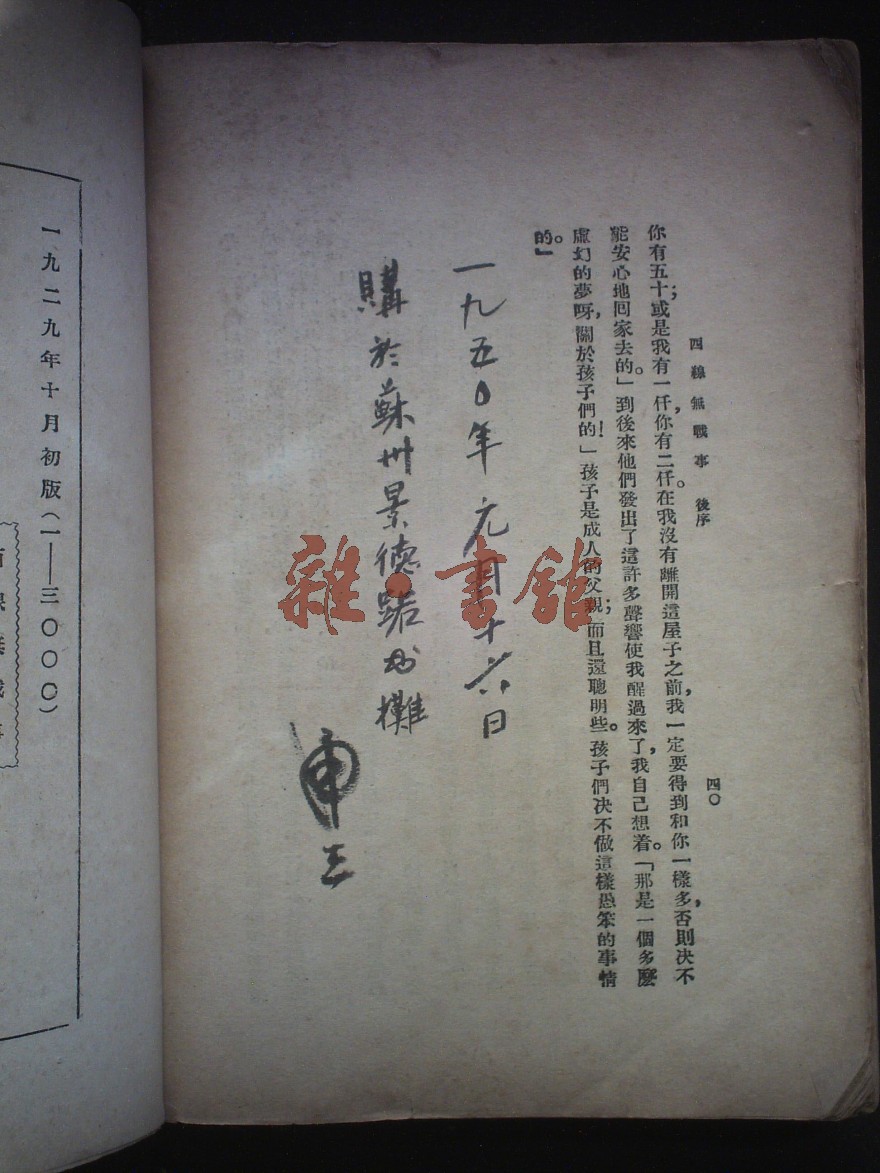 四線無戰事　後序
四〇
你有五十;或是我有一仟,你有二仟。在我沒有離開這屋子之前,我一定要得到和你一樣多,否則決不
能安心地回家去的。」到後來他們發出了這許多聲響使我醒過來了,我自己想着。「那是一個多麼
虛幻的夢呀,關於孩子們的!」孩子是成人的父親;而且還聰明些。孩子們決不做這樣愚笨的事情
的。」
一九五〇年元月十六日
購於蘇州景德路書攤
雜·書館
一九二九年十月初版(一——三〇〇〇)